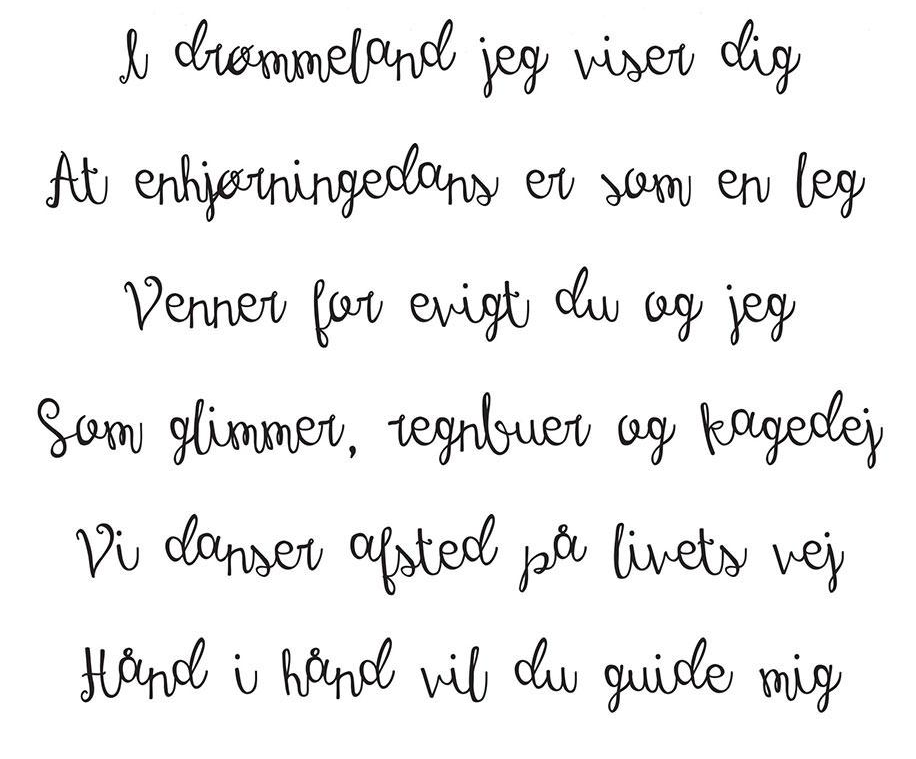 I drømmeland jeg viser dig
At enhjørningedans er som en leg
Venner for evigt du og jeg
Som glimmer, regnbuer og kagedej
Vi danser afsted på livets vej
Hånd i hånd vil du guide mig